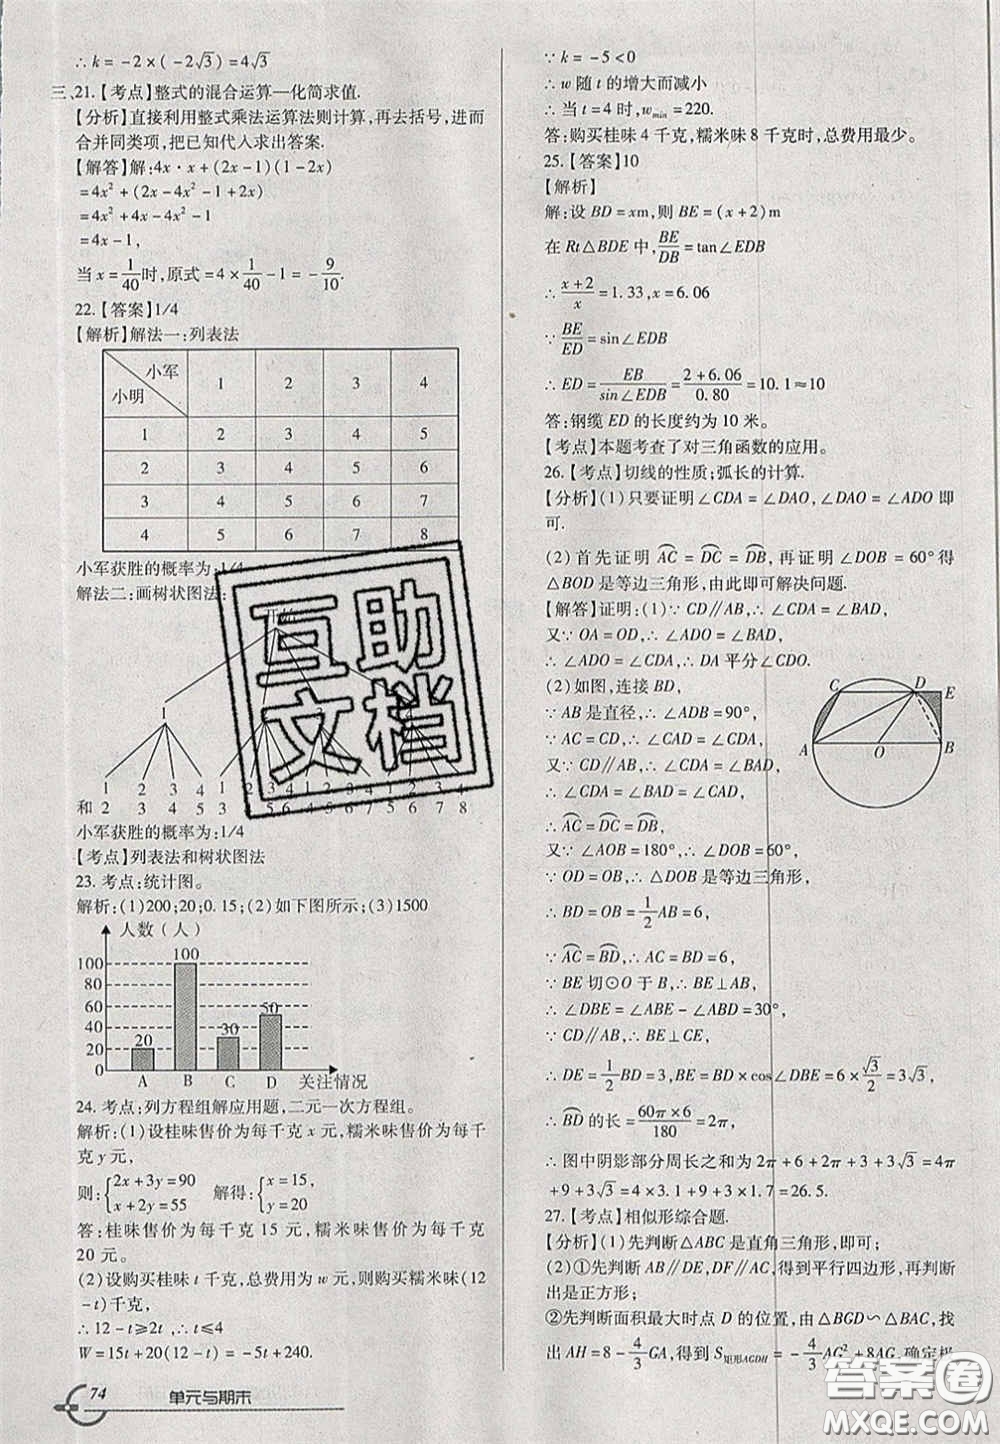 ∴k=-2×(-2√3)=4√3
三、21.【考点】整式的混合运算—化简求值.
【分析】直接利用整式乘法运算法则计算,再去括号,进而
合并同类项,把已知代人求出答案.
【解答】解:4x·x+(2x-1)(1-2x)
=4x²+(2x-4x²-1+2x)
=4x²+4x-4x²-1
=4x-1,
当x=1/40时,原式=4×1/40-1=-9/10.
22.【答案】1/4
【解析】解法一:列表法
小军 小明 1 2 3 4
1 2 3 4 5
2 3 4 5 6
3 4 5 6 7
4 5 6 7 8
小军获胜的概率为:1/4
解法二:画树状图法:
1
1 2 3 4 1 2 3 4 1 2 3 4 1 2 3 4
和 2 3 4 5 3 4 5 6 4 5 6 7 5 6 7 8
小军获胜的概率为:1/4
【考点】列表法和树状图法
23.考点:统计图。
解析:(1)200;20;0.15;(2)如下图所示;(3)1500
人数(人)
100
100
80
60
50
40
30
20
20
0
A B C D 关注情况
24.考点:列方程组解应用题,二元一次方程组。
解析:(1)设桂味售价为每千克x元,糯米味售价为每千
克y元,
则:{2x+3y=90 x+2y=55 解得:{x=15, y=20
答:桂味售价为每千克15元,糯米味售价为每千克
20元。
(2)设购买桂味t千克,总费用为w元,则购买糯米味(12
-t)千克,
∴12-t≥2t,∴t≤4
W=15t+20(12-t)=-5t+240.
74 单元与期末
∵k=-5<0
∴w随t的增大而减小
∴当t=4时,wmin=220.
答:购买桂味4千克,糯米味8千克时,总费用最少。
25.【答案】10
【解析】
解:设BD=xm,则BE=(x+2)m
在Rt△BDE中,BE/DB=tan∠EDB
∴(x+2)/x=1.33,x=6.06
∵BE/ED=sin∠EDB
∴ED=EB/sin∠EDB=(2+6.06)/0.80=10.1≈10
答:钢缆ED的长度约为10米。
【考点】本题考查了对三角函数的应用。
26.【考点】切线的性质;弧长的计算.
【分析】(1)只要证明∠CDA=∠DAO,∠DAO=∠ADO即
可.
(2)首先证明AC=DC=DB,再证明∠DOB=60°得
△BOD是等边三角形,由此即可解决问题.
【解答】证明:(1)∵CD∥AB,∴∠CDA=∠BAD,
又∵OA=OD,∴∠ADO=∠BAD,
∴∠ADO=∠CDA,∴DA平分∠CDO.
(2)如图,连接BD,
∵AB是直径,∴∠ADB=90°,
∵AC=CD,∴∠CAD=∠CDA,
又∵CD∥AB,∴∠CDA=∠BAD,
∴∠CDA=∠BAD=∠CAD,
∴AC=DC=DB,
又∵∠AOB=180°,∴∠DOB=60°,
∵OD=OB,∴△DOB是等边三角形,
∴BD=OB=1/2AB=6,
∵AC=BD,∴AC=BD=6,
∵BE切⊙O于B,∴BE⊥AB,
∴∠DBE=∠ABE-∠ABD=30°,
∵CD∥AB,∴BE⊥CE,
∴DE=1/2BD=3,BE=BD×cos∠DBE=6×√3/2=3√3,
∴BD的长=60π×6/180=2π,
∴图中阴影部分周长之和为2π+6+2π+3+3√3=4π
+9+3√3=4×3.1+9+3×1.7=26.5.
C D E A O B
27.【考点】相似形综合题.
【分析】(1)先判断△ABC是直角三角形,即可;
(2)①先判断AB∥DE,DF∥AC,得到平行四边形,再判断
出是正方形;
②先判断面积最大时点D的位置,由△BGD∽△BAC,找
出AH=8-4/3GA,得到S矩形AGDH=-4/3AG²+8AG,确定极
互助
文档
答案圈
MXQE.COM